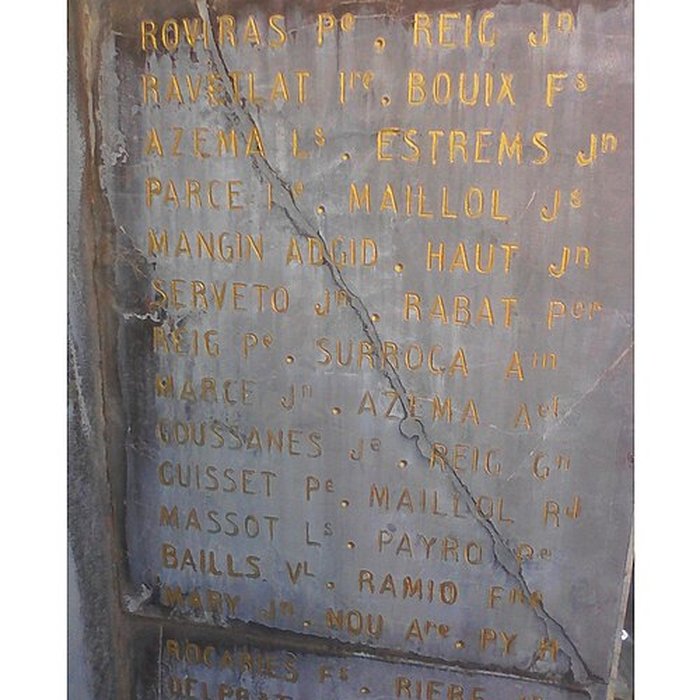 ROVIRAS Pe . REIG Jn
RAVETLAT Ire . BOUIX Fs
AZEMA Ls . ESTREMS Jn
PARCE . MAILLOL Js
MANGIN ADGID . HAUT Jn
SERVETO Jn . RABAT Per
REIG Pe . SURROCA Ain
MARCE Jn . AZEMA Ael
GOUSSANES Je . REIG Gn
GUISSET Pe . MAILLOL Rd
MASSOT Ls . PAYRO Pe
BAILLS VL . RAMIO
MARY Jn . NOU Are . PY H
ROCARIES Fs . RIERE
DELPRAT